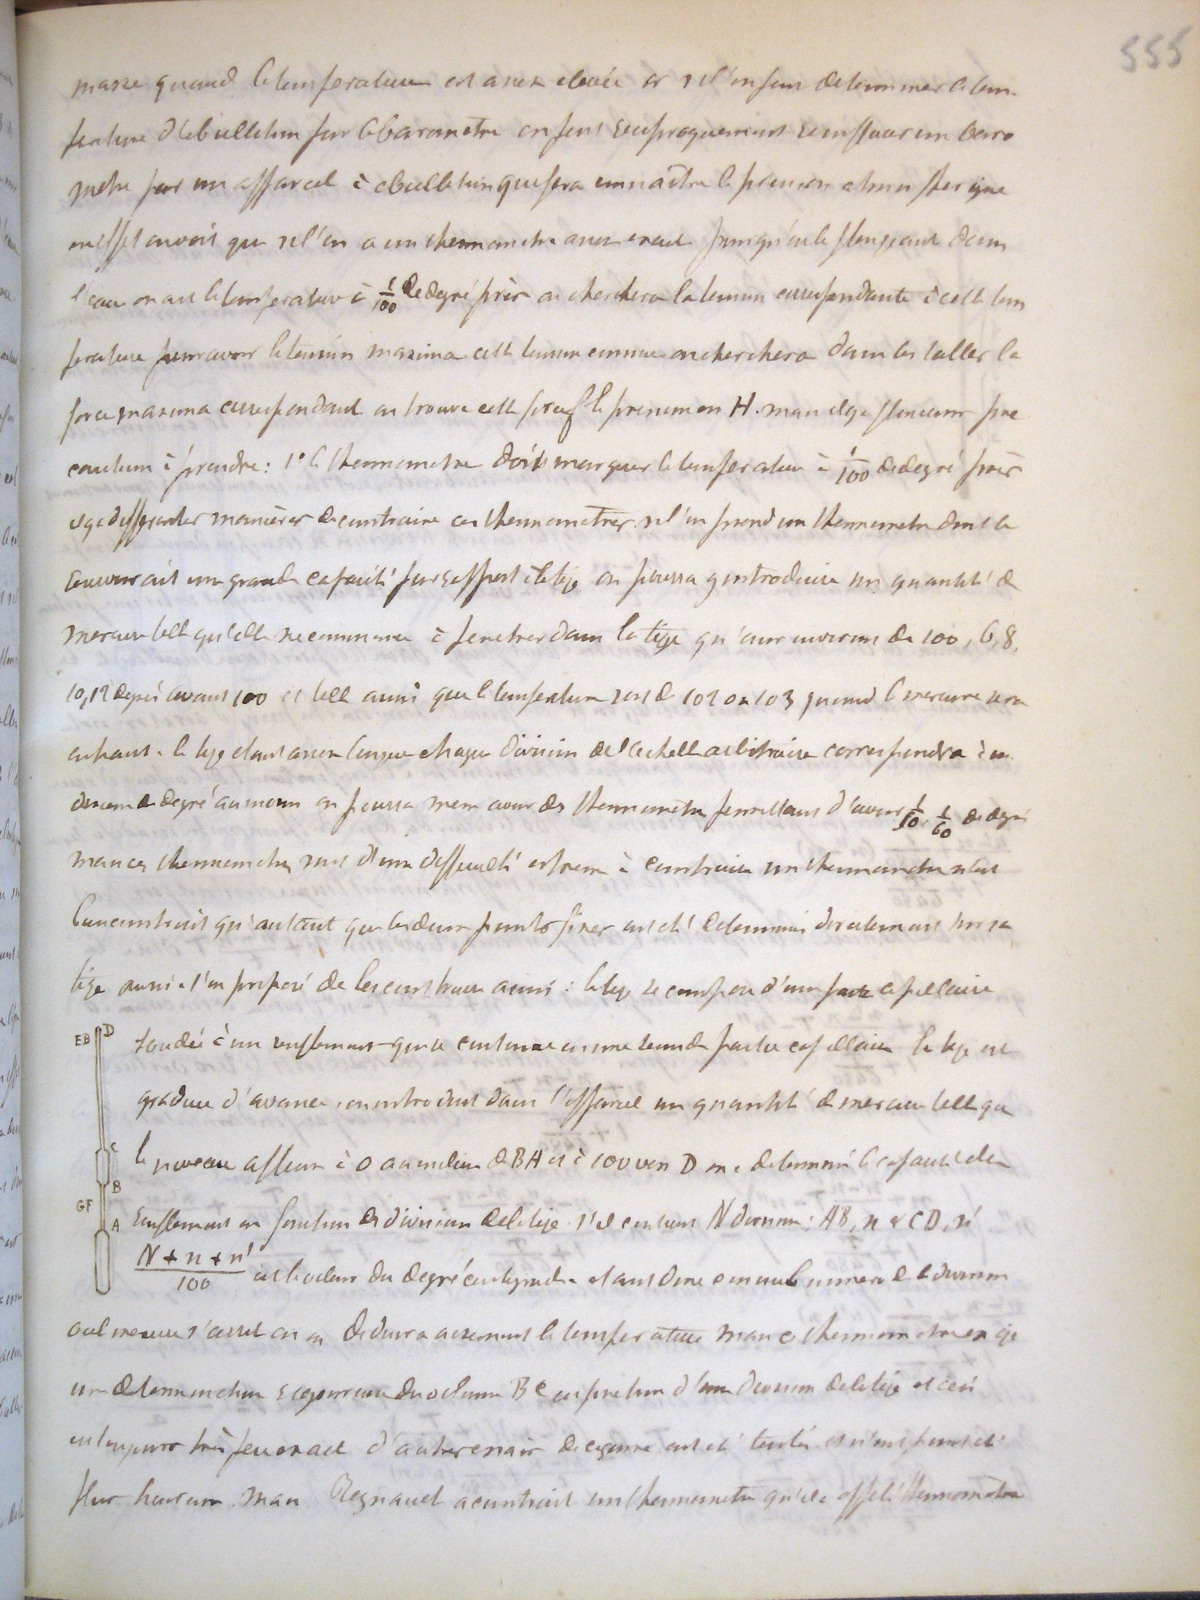 555
masse quand la température est assez élevée or si l'on peut déterminer la tem-
pérature d'ébullition par le baromètre on peut réciproquement remplacer un baro
mètre par un appareil à ébullition qui fera connaître la pression atmosphérique
en effet on voit que si l'on a un thermomètre assez exact pour qu'en le plongeant dans
l'eau on ait la température à 1/100 de degré près on cherchera la tension correspondante à cette tem
pérature pour avoir la tension maxima cette tension connue on cherchera dans les tables la
force maxima correspondant on trouve cette force f la pression en H. mais il y a plusieurs pré
cautions à prendre: 1° le thermomètre doit marquer la température à 1/100 de degré près
il y a différentes manières de construire ces thermomètres si l'on prend un thermomètre dont le
réservoir ait une grande capacité par rapport à la tige on pourra y introduire une quantité de
mercure telle qu'elle ne commence à pénétrer dans la tige qu'aux environs de 100, 6, 8,
10, 12 degrés avant 100 et telle aussi que la température soit de 102 ou 103 quand le mercure sera
en haut. la tige étant assez longue chaque division de l'échelle arbitraire correspondra à un
dixième de degré au moins on pourra même avoir des thermomètres permettant d'avoir 1/50, 1/60 de degré
mais ces thermomètres sont d'une difficulté extrême à construire un thermomètre n'est
bien construit qu'autant que les deux points fixes ont été déterminés directement sur sa
tige aussi a-t-on proposé de les construire ainsi: la tige se compose d'une partie capillaire
EB D soudée à un renflement qui se continue en une seconde partie capillaire la tige est
graduée d'avance, on introduit dans l'appareil une quantité de mercure telle que
C le niveau affleure à 0 au milieu de BA et à 100 vers D on a déterminé la capacité du
B
GF A renflement en fonction des divisions de la tige. s'il contient N divisions; AB, n et CD, n'
N + n + n' / 100 est la valeur du degré centigrade étant donc connu le numéro de la division
où le mercure s'arrête on en déduira aisément la température mais ce thermomètre exige
une détermination rigoureuse du volume BC en fonction d'une division de la tige et ceci
est toujours très peu exact d'autres essais de ce genre ont été tentés et n'ont point été
plus heureux. mais Regnault a construit un thermomètre qu'il a appelé thermomètre